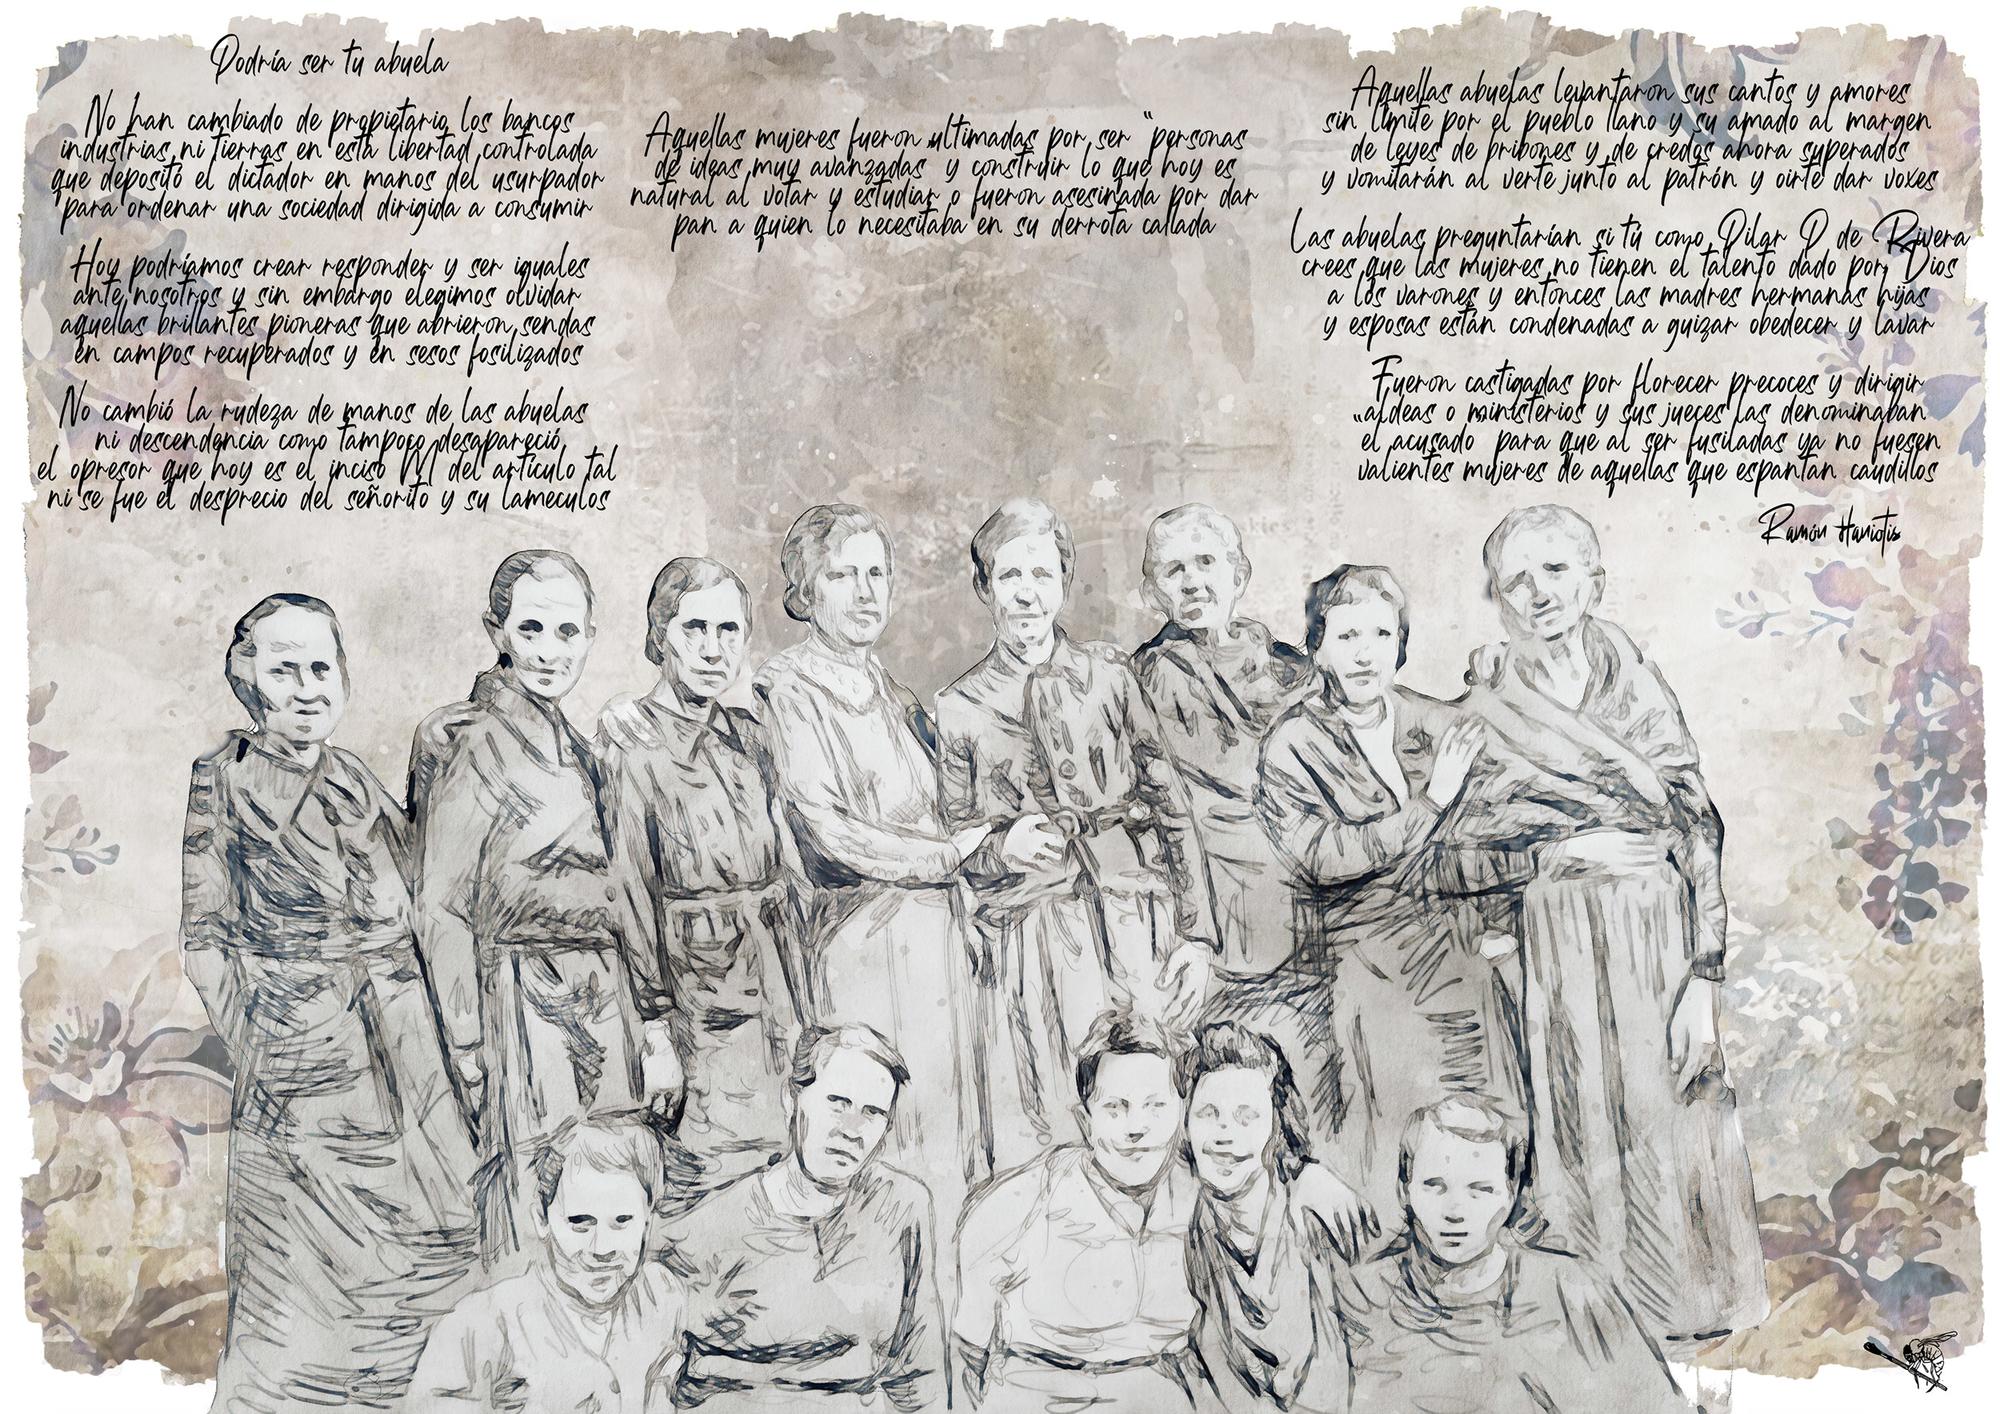 Podría ser tu abuela
No han cambiado de propietario los bancos
industrias ni tierras en esta libertad controlada
que depositó el dictador en manos del usurpador
para ordenar una sociedad dirigida a consumir
Hoy podríamos crear responder y ser iguales
ante nosotros y sin embargo elegimos olvidar
aquellas brillantes pioneras que abrieron sendas
en campos recuperados y en sesos fosilizados
No cambió la rudeza de manos de las abuelas
ni descendencia como tampoco desapareció
el opresor que hoy es el inciso M del artículo tal
ni se fue el desprecio del señorito y su lameculos
Aquellas mujeres fueron ultimadas por ser "personas
de ideas muy avanzadas" y construir lo que hoy es
natural al votar y estudiar o fueron asesinada por dar
pan a quien lo necesitaba en su derrota callada
Aquellas abuelas levantaron sus cantos y amores
sin límite por el pueblo llano y su amado al margen
de leyes de bribones y de credos ahora superados
y vomitarán al verte junto al patrón y oirte dar voxes
Las abuelas preguntarían si tú como Pilar P de Rivera
crees que las mujeres no tienen el talento dado por Dios
a los varones y entonces las madres hermanas hijas
y esposas están condenadas a guizar obedecer y lavar
Fueron castigadas por florecer precoces y dirigir
aldeas o ministerios y sus jueces las denominaban
"el acusado" para que al ser fusiladas ya no fuesen
valientes mujeres de aquellas que espantan caudillos
Ramón Haniotis